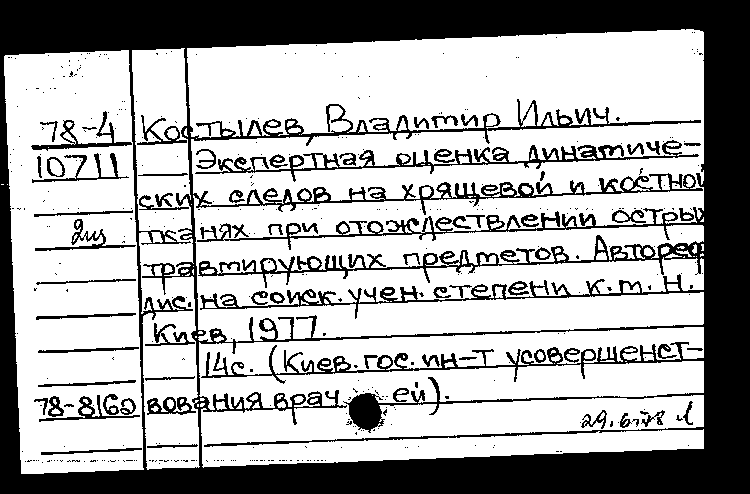 78-4 Костылев, Владимир Ильич.
10711 Экспертная оценка динамиче-
ских следов на хрящевой и костной
2из тканях при отождествлении острых
травмирующих предметов. Автореф
дис. на соиск. учен. степени к.м.н.
Киев, 1977.
14с. (Киев. гос. ин-т усовершенст-
78-8160 вования врачей).
29.6.78